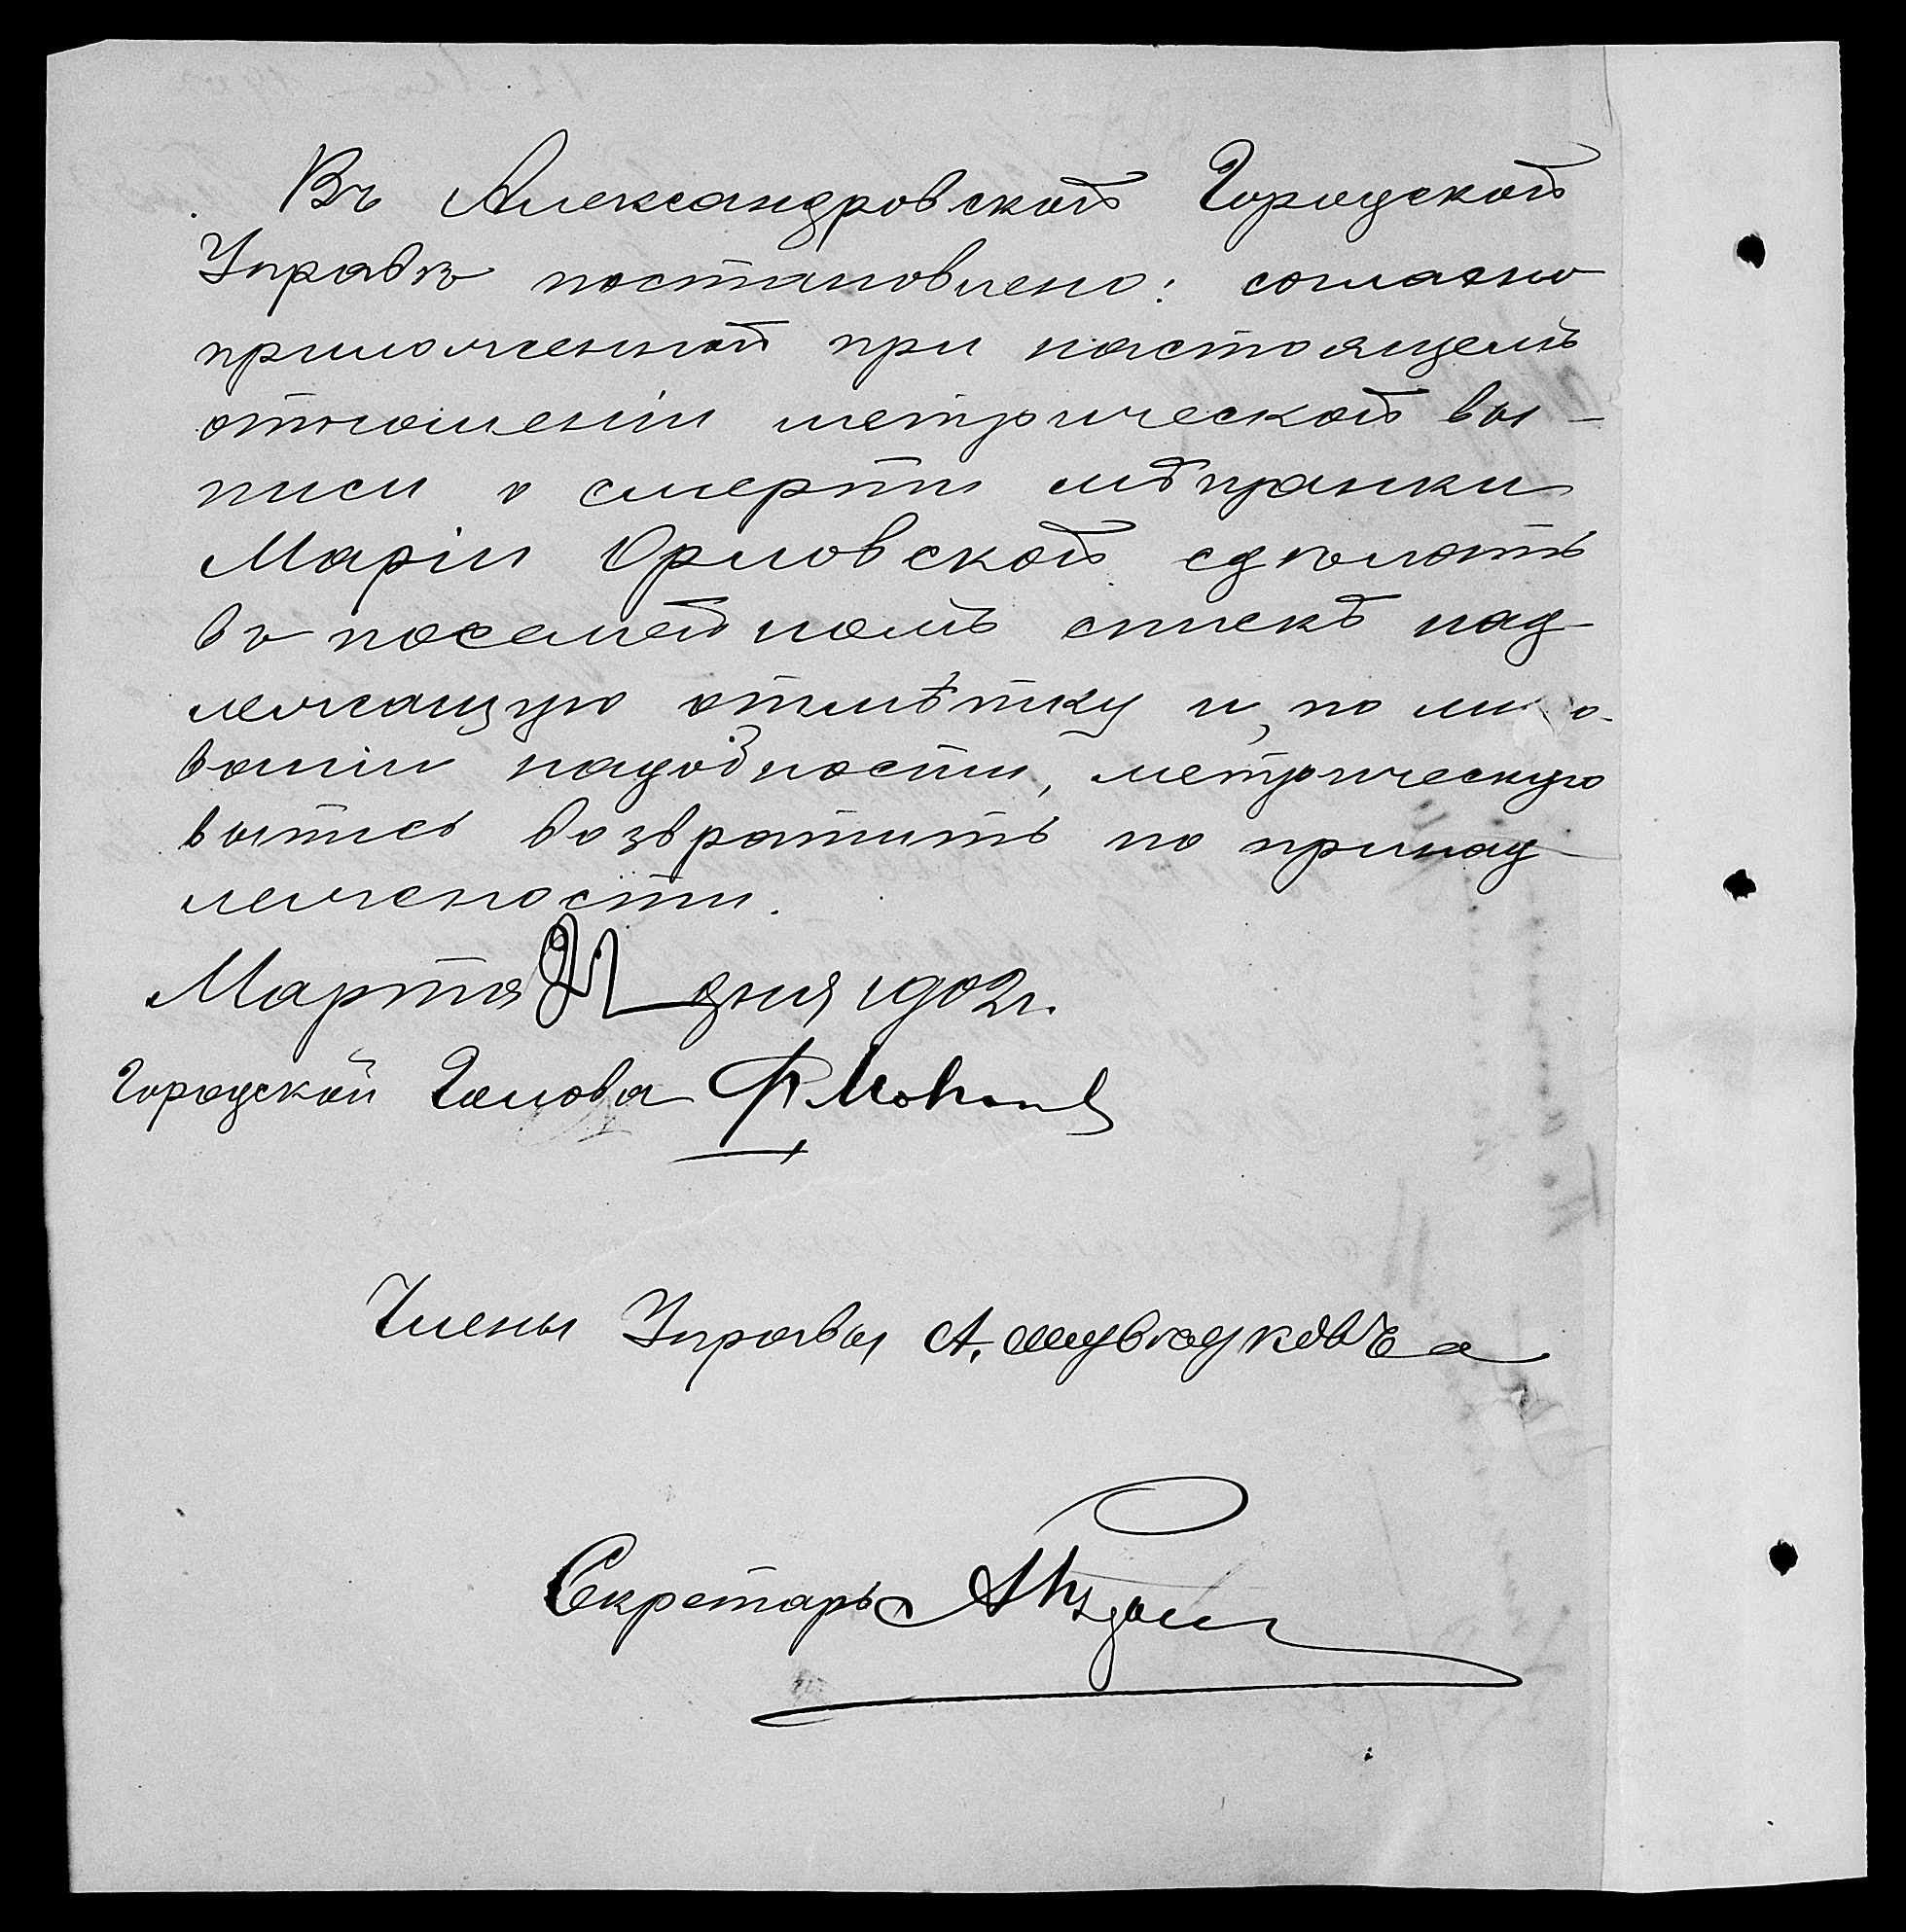 Въ Александровской Городской
Управѣ постановлено: согласно
приложенной при настоящемъ
отношеніи метрической вы-
писи о смерти мѣщанки
Маріи Орловской сдѣлать
въ посемейномъ спискѣ над-
лежащую отмѣтку и, по мино-
ваніи надобности, метрическую
выпись возвратить по принад-
лежности.
Марта 22 дня 1902 г.
Городской Голова Ф.
Члены Управы А.
Секретарь